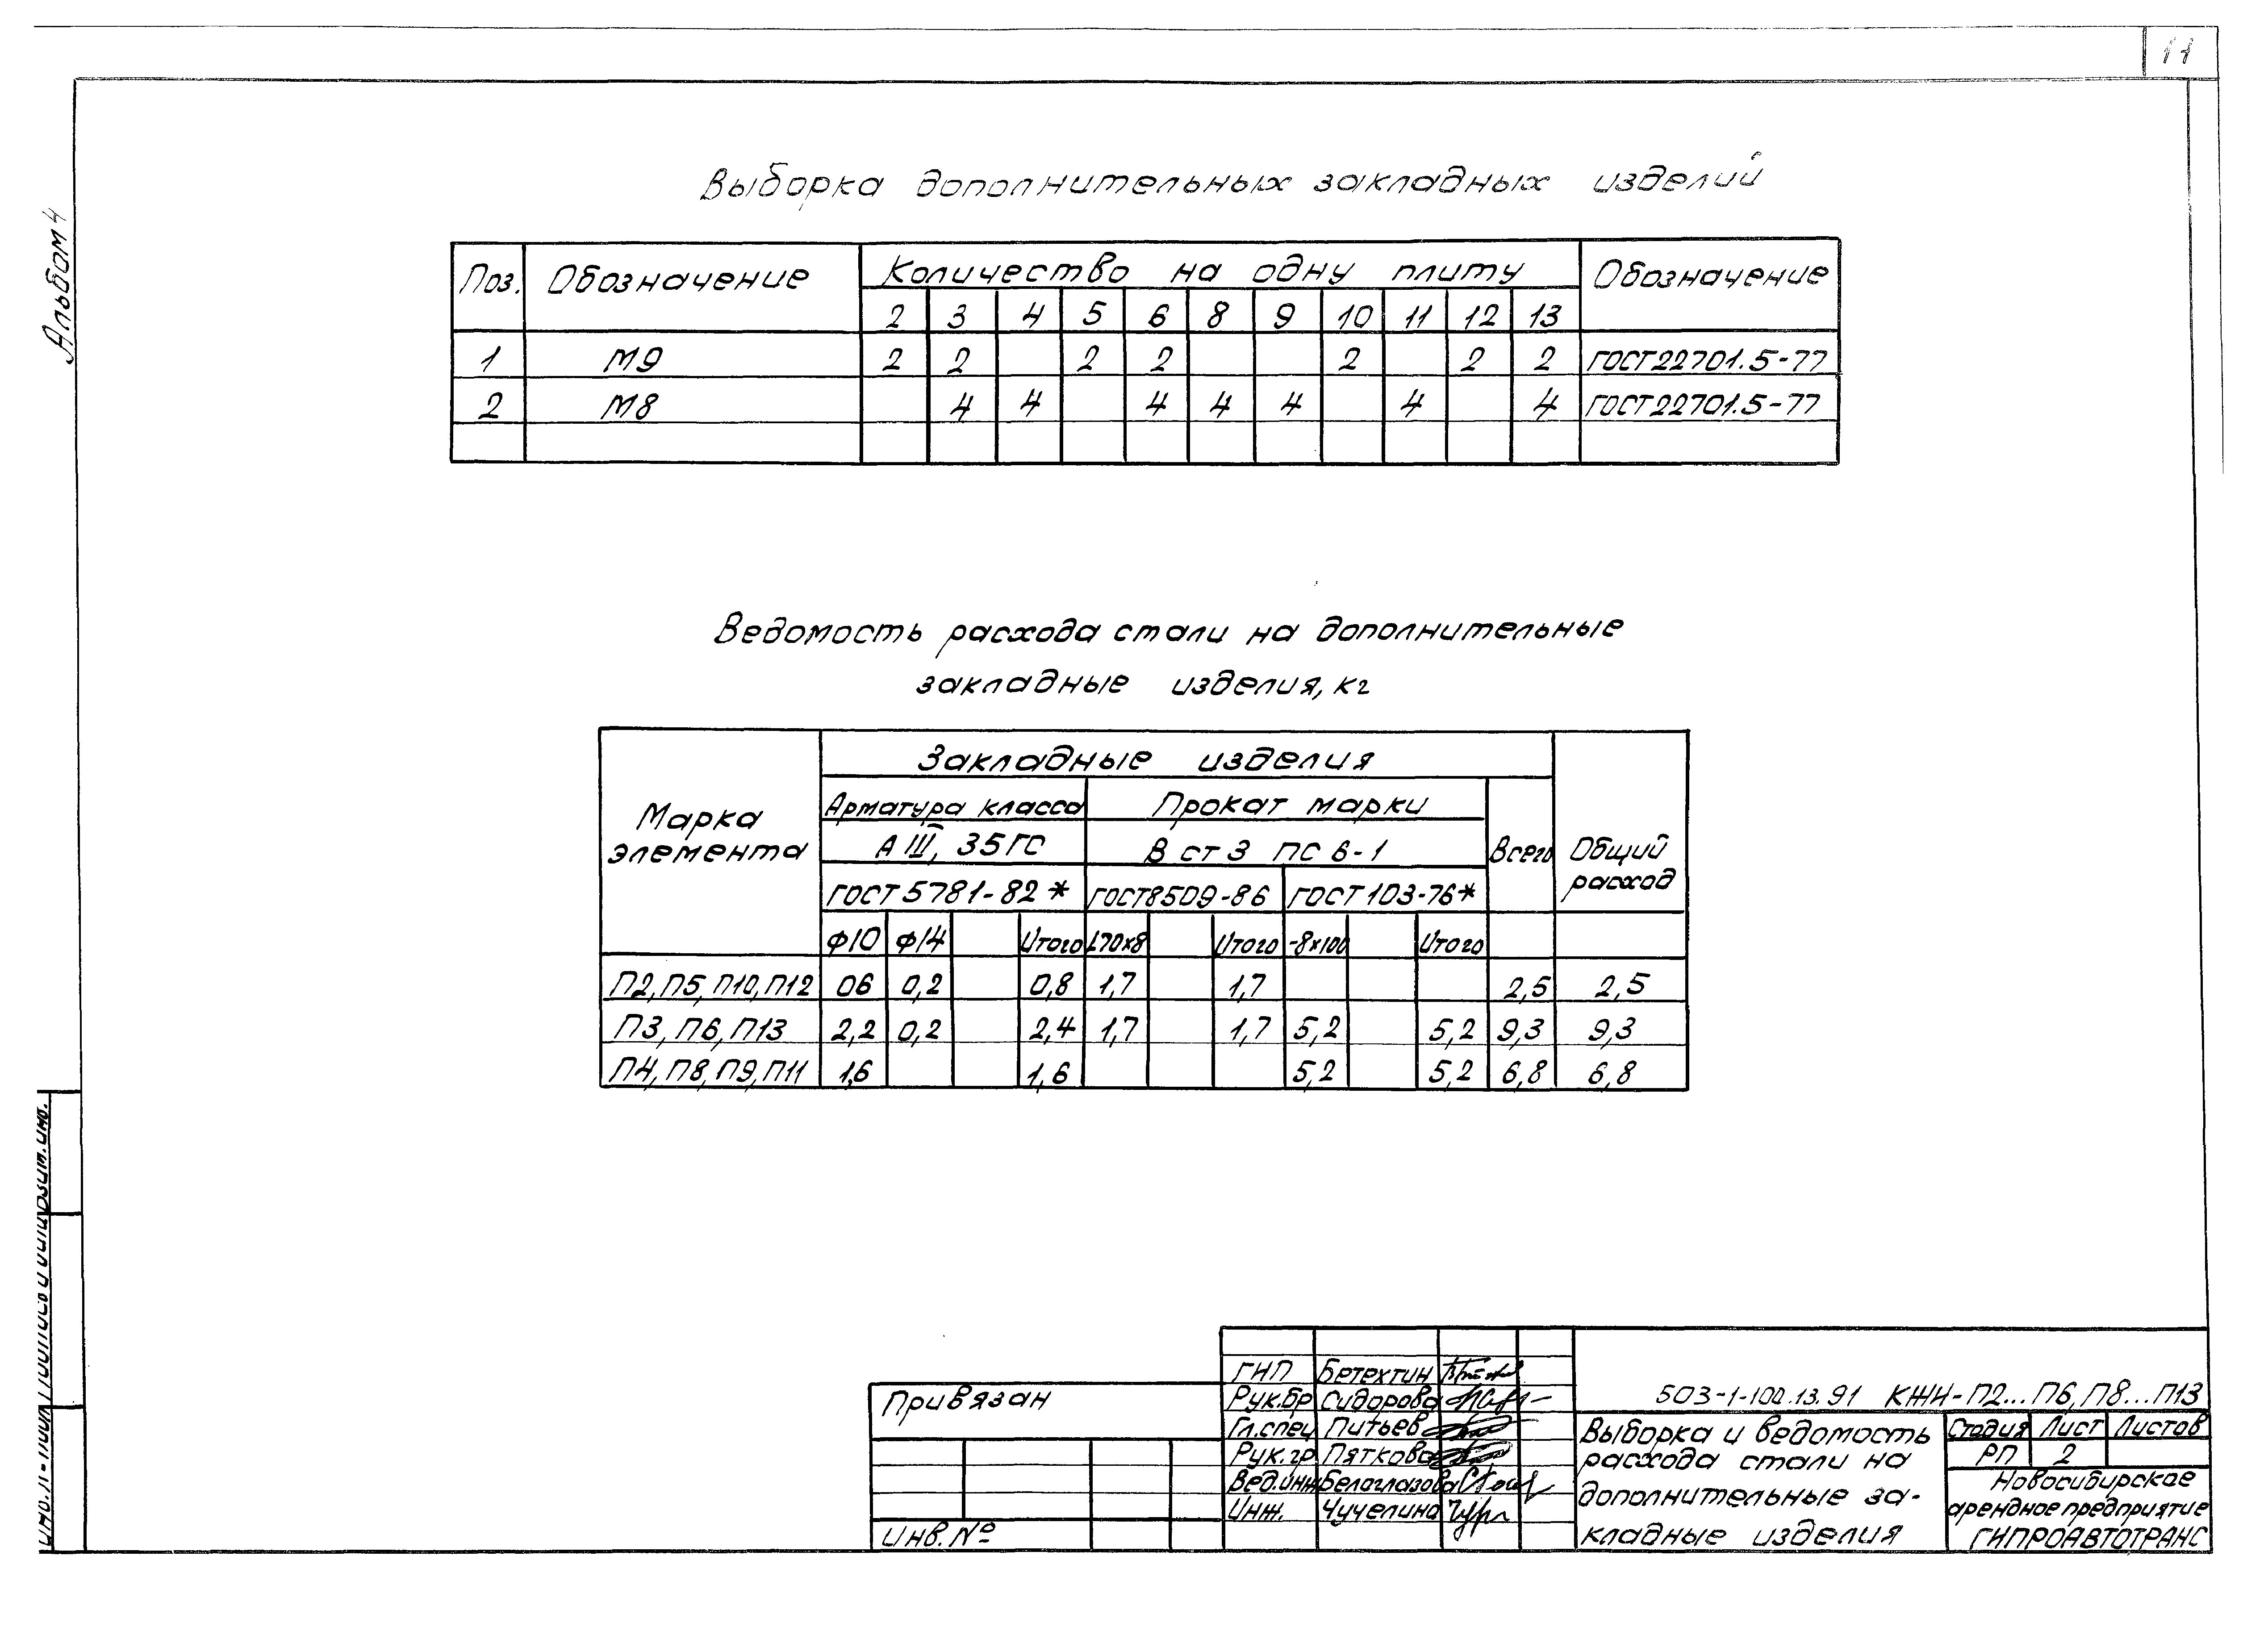 11
Альбом 4
Выборка дополнительных закладных изделий
Поз. Обозначение Количество на одну плиту Обозначение
2 3 4 5 6 8 9 10 11 12 13
1 М9 2 2 2 2 2 2 2 ГОСТ 22701.5-77
2 М8 4 4 4 4 4 4 4 ГОСТ 22701.5-77
Ведомость расхода стали на дополнительные
закладные изделия, кг
Марка элемента Закладные изделия Общий расход
Арматура класса Прокат марки Всего
А III, 35ГС В ст 3 пс 6-1
ГОСТ 5781-82* ГОСТ 8509-86 ГОСТ 103-76*
Ф10 Ф14 Итого L70x8 Итого -8x100 Итого
П2, П5, П10, П12 06 0,2 0,8 1,7 1,7 2,5 2,5
П3, П6, П13 2,2 0,2 2,4 1,7 1,7 5,2 5,2 9,3 9,3
П4, П8, П9, П11 1,6 1,6 5,2 5,2 6,8 6,8
Привязан
Инв. №
ГИП Бетехтин
Рук.бр Сидорова
Гл.спец Питьев
Рук.гр Пяткова
Вед.инж Белоглазова
Инж. Чучелина
503-1-100.13.91 КЖИ-П2...П6, П8...П13
Выборка и ведомость
расхода стали на
дополнительные за-
кладные изделия
Стадия Лист Листов
РП 2
Новосибирское
арендное предприятие
ГИПРОАВТОТРАНС